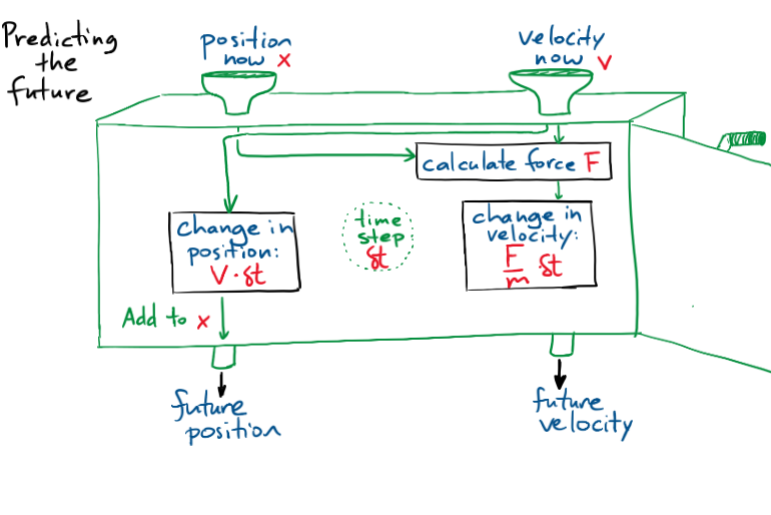 Predicting
the
future
position
now x
velocity
now v
calculate force F
change in
position:
V·δt
time
step:
δt
change in
velocity:
F
m δt
Add to x
future
position
future
velocity